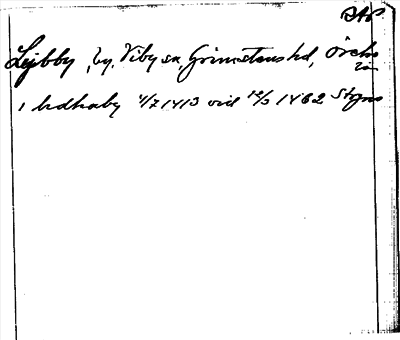 Lejbby, by, Viby sn, Grimstens hd, Örebro
län
i ledhaby 4/7 1413 vid 12/3 1462 Styns